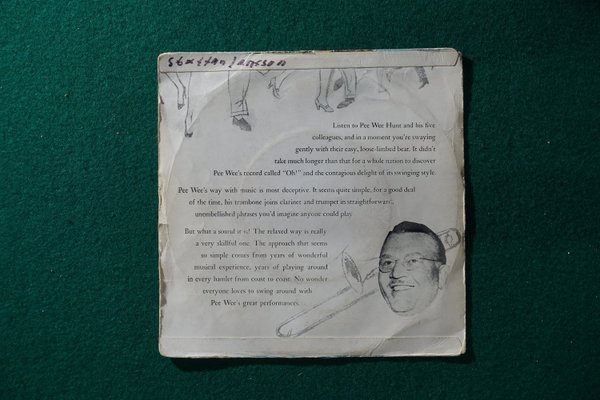 Staffan Jansson
Listen to Pee Wee Hunt and his five
colleagues, and in a moment you're swaying
gently with their easy, loose-limbed beat. It didn't
take much longer than that for a whole nation to discover
Pee Wee's record called "Oh!" and the contagious delight of its swinging style.
Pee Wee's way with music is most deceptive. It seems quite simple, for a good deal
of the time, his trombone joins clarinet and trumpet in straightforward,
unembellished phrases you'd imagine anyone could play.
But what a sound it is! The relaxed way is really
a very skillful one. The approach that seems
so simple comes from years of wonderful
musical experience, years of playing around
in every hamlet from coast to coast. No wonder
everyone loves to swing around with
Pee Wee's great performances.